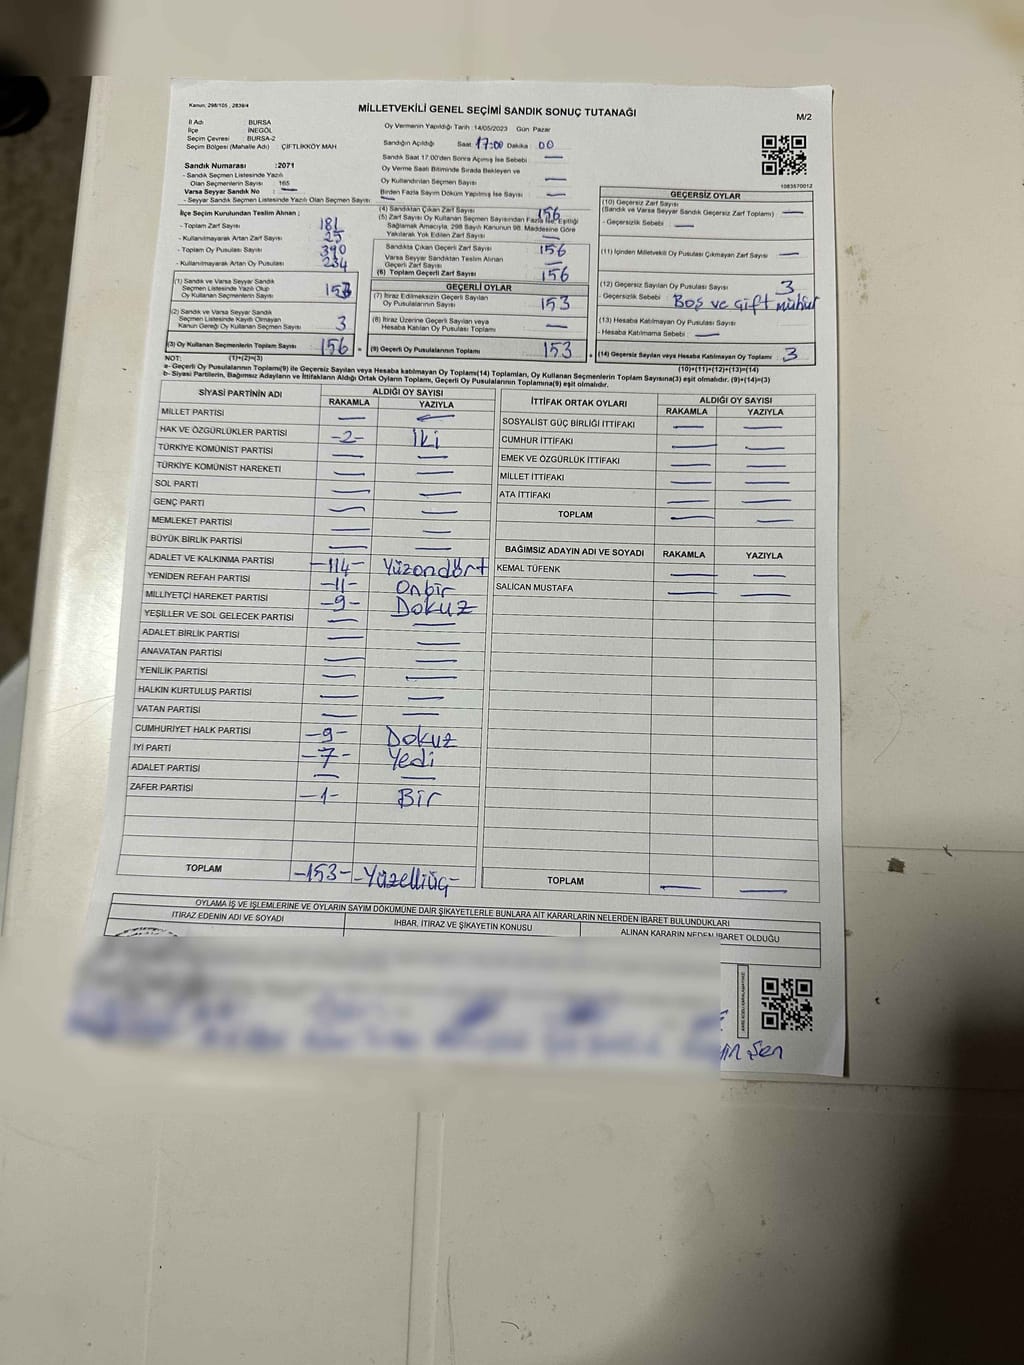 Kanun; 298/105 , 2839/4
MİLLETVEKİLİ GENEL SEÇİMİ SANDIK SONUÇ TUTANAĞI
M/2
İl Adı : BURSA
İlçe : İNEGÖL
Seçim Çevresi : BURSA-2
Seçim Bölgesi (Mahalle Adı) : ÇİFTLİKKÖY MAH
Sandık Numarası :2071
- Sandık Seçmen Listesinde Yazılı
Olan Seçmenlerin Sayısı : 165
Varsa Seyyar Sandık No : —
- Seyyar Sandık Seçmen Listesinde Yazılı Olan Seçmen Sayısı:
İlçe Seçim Kurulundan Teslim Alınan ;
- Toplam Zarf Sayısı : 181
- Kullanılmayarak Artan Zarf Sayısı : 25
- Toplam Oy Pusulası Sayısı : 390
- Kullanılmayarak Artan Oy Pusulası : 234
(1) Sandık ve Varsa Seyyar Sandık
Seçmen Listesinde Yazılı Olup
Oy Kullanan Seçmenlerin Sayısı : 153
(2) Sandık ve Varsa Seyyar Sandık
Seçmen Listesinde Kayıtlı Olmayan
Kanun Gereği Oy Kullanan Seçmen Sayısı : 3
(3) Oy Kullanan Seçmenlerin Toplam Sayısı : 156
Oy Vermenin Yapıldığı Tarih : 14/05/2023 Gün Pazar
Sandığın Açıldığı Saat 17:00 Dakika 00
Sandık Saat 17:00'den Sonra Açılmış İse Sebebi : —
Oy Verme Saati Bitiminde Sırada Bekleyen ve
Oy Kullandırılan Seçmen Sayısı : —
Birden Fazla Sayım Döküm Yapılmış İse Sayısı : —
(4) Sandıktan Çıkan Zarf Sayısı : 156
(5) Zarf Sayısı Oy Kullanan Seçmen Sayısından Fazla İse, Eşitliği
Sağlamak Amacıyla, 298 Sayılı Kanunun 98. Maddesine Göre
Yakılarak Yok Edilen Zarf Sayısı : —
Sandıkta Çıkan Geçerli Zarf Sayısı : 156
Varsa Seyyar Sandıktan Teslim Alınan
Geçerli Zarf Sayısı : —
(6) Toplam Geçerli Zarf Sayısı : 156
GEÇERLİ OYLAR
(7) İtiraz Edilmeksizin Geçerli Sayılan
Oy Pusulalarının Sayısı : 153
(8) İtiraz Üzerine Geçerli Sayılan veya
Hesaba Katılan Oy Pusulası Toplamı : —
= (9) Geçerli Oy Pusulalarının Toplamı : 153
1083570012
GEÇERSİZ OYLAR
(10) Geçersiz Zarf Sayısı
(Sandık ve Varsa Seyyar Sandık Geçersiz Zarf Toplamı) : —
- Geçersizlik Sebebi : —
(11) İçinden Milletvekili Oy Pusulası Çıkmayan Zarf Sayısı : —
(12) Geçersiz Sayılan Oy Pusulası Sayısı : 3
- Geçersizlik Sebebi : Boş ve çift mühür
(13) Hesaba Katılmayan Oy Pusulası Sayısı
- Hesaba Katılmama Sebebi : —
+ (14) Geçersiz Sayılan veya Hesaba Katılmayan Oy Toplamı : 3
NOT: (1)+(2)=(3) (10)+(11)+(12)+(13)=(14)
a- Geçerli Oy Pusulalarının Toplamı(9) ile Geçersiz Sayılan veya Hesaba katılmayan Oy Toplamı(14) Toplamları, Oy Kullanan Seçmenlerin Toplam Sayısına(3) eşit olmalıdır. (9)+(14)=(3)
b- Siyasi Partilerin, Bağımsız Adayların ve İttifakların Aldığı Ortak Oyların Toplamı, Geçerli Oy Pusulalarının Toplamına(9) eşit olmalıdır.
SİYASİ PARTİNİN ADI ALDIĞI OY SAYISI
RAKAMLA YAZIYLA
MİLLET PARTİSİ — —
HAK VE ÖZGÜRLÜKLER PARTİSİ -2- İki
TÜRKİYE KOMÜNİST PARTİSİ — —
TÜRKİYE KOMÜNİST HAREKETİ — —
SOL PARTİ — —
GENÇ PARTİ — —
MEMLEKET PARTİSİ — —
BÜYÜK BİRLİK PARTİSİ — —
ADALET VE KALKINMA PARTİSİ -114- Yüzondört
YENİDEN REFAH PARTİSİ -11- Onbir
MİLLİYETÇİ HAREKET PARTİSİ -9- Dokuz
YEŞİLLER VE SOL GELECEK PARTİSİ — —
ADALET BİRLİK PARTİSİ — —
ANAVATAN PARTİSİ — —
YENİLİK PARTİSİ — —
HALKIN KURTULUŞ PARTİSİ — —
VATAN PARTİSİ — —
CUMHURİYET HALK PARTİSİ -9- Dokuz
İYİ PARTİ -7- Yedi
ADALET PARTİSİ — —
ZAFER PARTİSİ -1- Bir
TOPLAM -153- -Yüzelliüç-
İTTİFAK ORTAK OYLARI ALDIĞI OY SAYISI
RAKAMLA YAZIYLA
SOSYALİST GÜÇ BİRLİĞİ İTTİFAKI — —
CUMHUR İTTİFAKI — —
EMEK VE ÖZGÜRLÜK İTTİFAKI — —
MİLLET İTTİFAKI — —
ATA İTTİFAKI — —
TOPLAM — —
BAĞIMSIZ ADAYIN ADI VE SOYADI RAKAMLA YAZIYLA
KEMAL TÜFENK — —
SALİCAN MUSTAFA — —
TOPLAM — —
OYLAMA İŞ VE İŞLEMLERİNE VE OYLARIN SAYIM DÖKÜMÜNE DAİR ŞİKAYETLERLE BUNLARA AİT KARARLARIN NELERDEN İBARET BULUNDUKLARI
İTİRAZ EDENİN ADI VE SOYADI İHBAR, İTİRAZ VE ŞİKAYETİN KONUSU ALINAN KARARIN NEDEN İBARET OLDUĞU
Şen